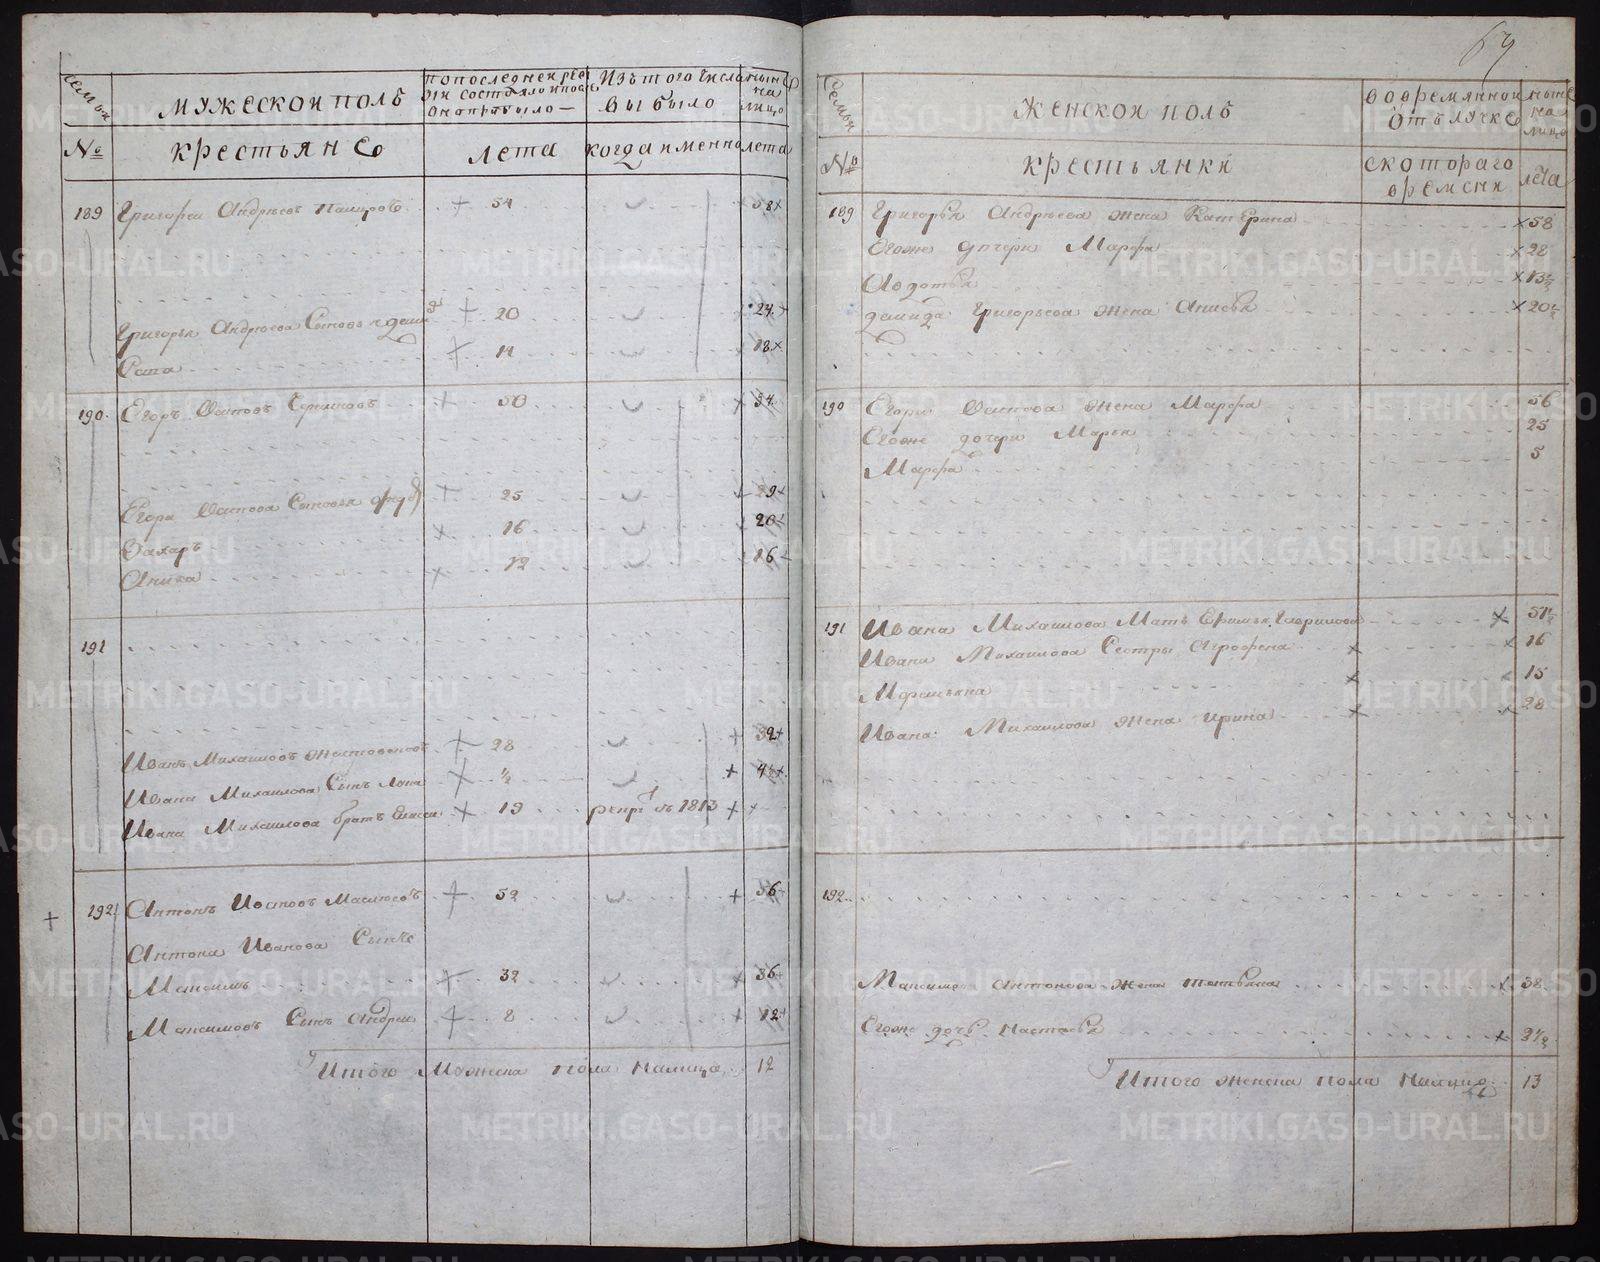 69
Семьи
МУЖЕСКОИ ПОЛЪ
по последней реви
зіи состояло и после
оной прибыло
изъ того числа
выбыло
ныне
на
лицо
№
крестьяне
лета
когда именно
лета
189 Григореи Андреевъ 54 58
Григорья Андреева Сыновья деми
д 20 24
14 18
190 Егоръ Осиповъ 50 54
Егора Осипова Сыновья 25 29
Захаръ 16 20
Аника 12 16
191
Иванъ Михаиловъ 28 32
Ивана Михаилова Сынъ ½ 4½
Ивана Михаилова братъ 19 въ 1813
192 Антонъ Ивановъ 52 56
Антона Иванова Сынъ
Максимъ 32 36
Максимовъ Сынъ Андреи 8 12
Итого Мужеска пола Налицо 12
Семьи
ЖЕНСКОИ ПОЛЪ
во временнои
отълучке
ныне
на
лицо
№
крестьянки
с котораго
времени
лета
189 Григорья Андреева жена Катерина 58
Егоже дочери Марфа 28
Авдотья 13½
демида Григорьева жена Анисья 20½
190 Егора Осипова жена Марфа 56
Егоже дочери Марья 25
Марфа 5
191 Ивана Михаилова Мать Гаврилова 51½
Ивана Михаилова Сестры Агрофена 16
15
Ивана Михаилова жена ирина 28
192
Максима Антонова жена татьяна 38
Егоже дочь Настасья
Итого женска пола Налицо 13
METRIKI.GASO-URAL.RU